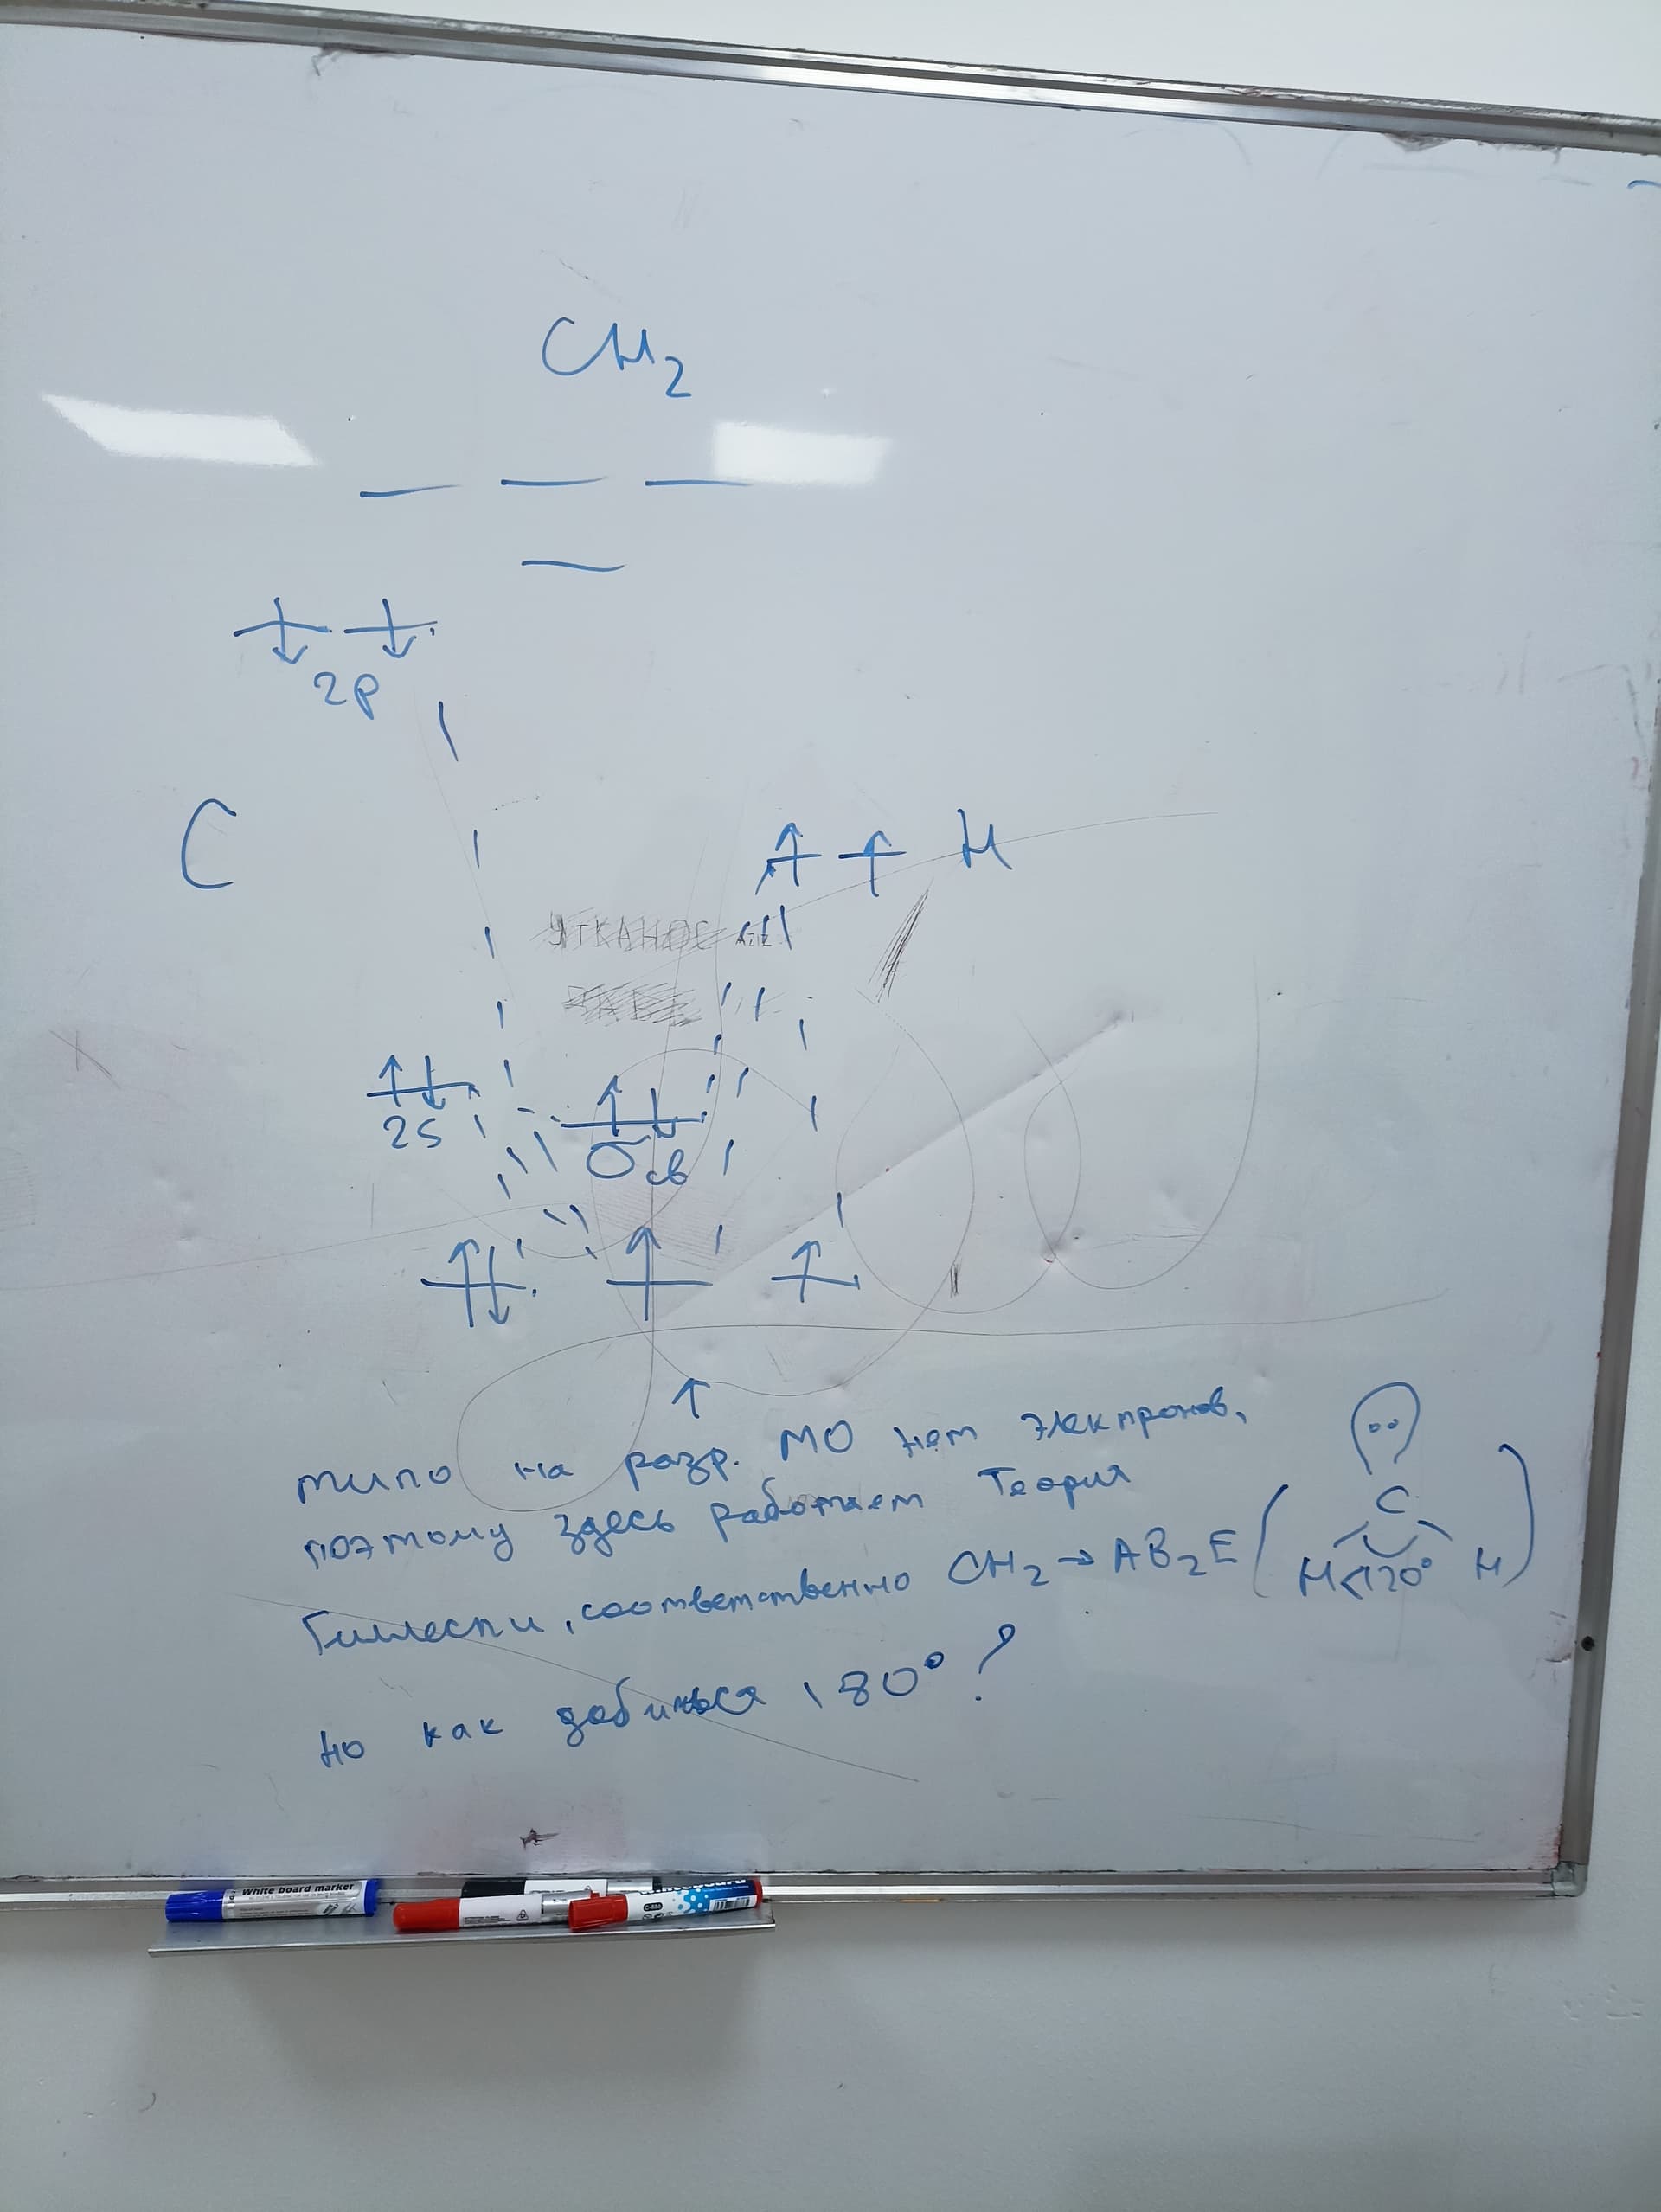 CH₂
2p
C
H
УТКАНОС
2s
σ св
типо на разр. МО нет электронов,
поэтому здесь работает Теория
Гиллеспи, соответственно CH₂ → AB₂E ( C H <120° H )
но как добиться 180°?
White board marker